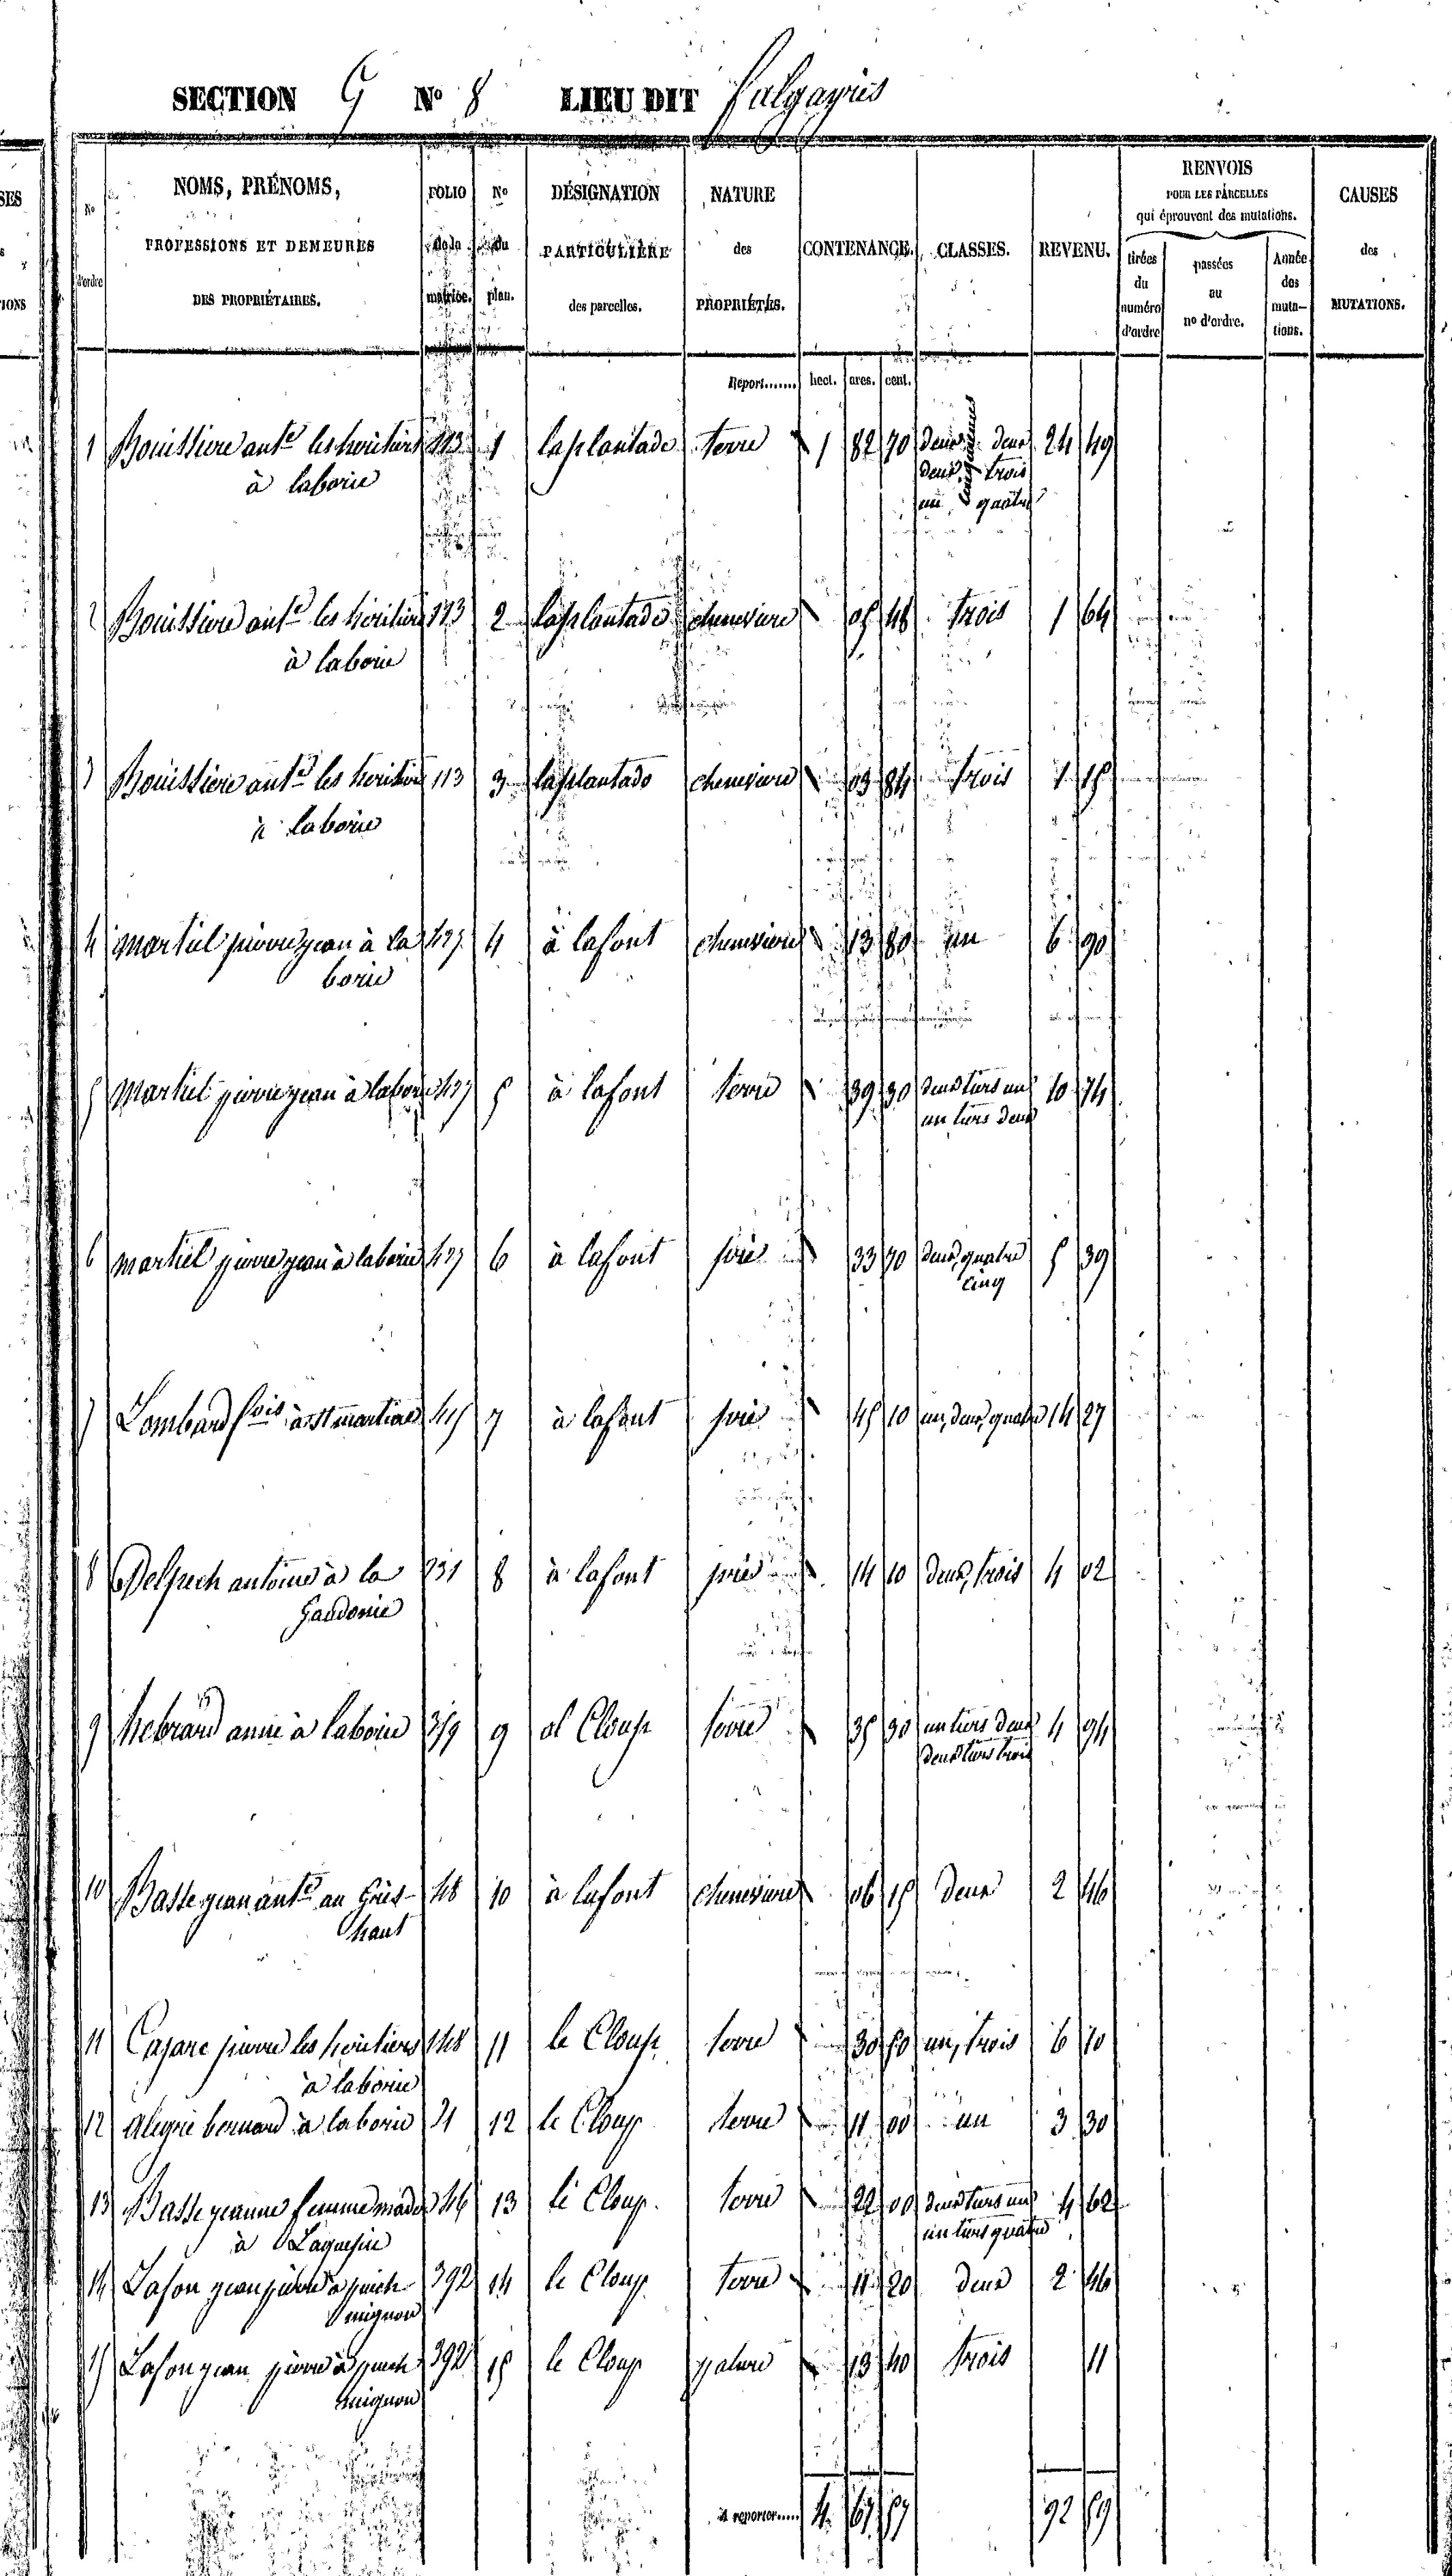 SECTION G No 8 LIEU DIT
No d'ordre NOMS, PRÉNOMS, PROFESSIONS ET DEMEURES DES PROPRIÉTAIRES. FOLIO de la matrice. No du plan. DÉSIGNATION PARTICULIÈRE des parcelles. NATURE des PROPRIÉTÉS. CONTENANCE. CLASSES. REVENU. RENVOIS POUR LES PARCELLES qui éprouvent des mutations. tirées du numéro d'ordre passées au no d'ordre. Année des muta- tions. CAUSES des MUTATIONS.
Report....... hect. ares. cent.
1 Bouissiere ante les heritiers 113 1 laplantade terre 1 82 70 deux deux 24 49
à laborie deux trois
un quatre
2 Bouissiere ante les heritiers 113 2 laplantade cheneviere 05 48 trois 1 64
à laborie
3 Bouissiere ante les heritiers 113 3 laplantade cheneviere 03 84 trois 1 15
à laborie
4 Martiel pierre jean à la 427 4 à lafont cheneviere 13 80 un 6 90
borie
5 Martiel pierre jean à laborie 427 5 à lafont terre 39 30 deux tiers un 10 74
un tiers deux
6 martiel pierre jean à laborie 427 6 à lafont pré 33 70 deux, quatre 5 39
cinq
7 Lombard fois à st martial 415 7 à lafont pré 45 10 un, deux, quatre 14 27
8 Delpech antoine à la 231 8 à lafont pré 14 10 deux, trois 4 02
9 hebrard anne à laborie 359 9 al Cloup terre 35 30 un tiers deux 4 94
deux tiers trois
10 Basse jean ante au 48 10 à lafont cheneviere 06 15 deux 2 46
haut
11 Cajarc pierre les heritiers 148 11 le Cloup terre 30 50 un, trois 6 10
à laborie
12 alegre bernard à laborie 21 12 le Cloup terre 11 00 un 3 30
13 Basse jeanne femme 46 13 le Cloup terre 22 00 deux tiers un 4 62
à un tiers quatre
14 Lafon jean pierre à puech 392 14 le Cloup terre 11 20 deux 2 46
mignon
15 Lafon jean pierre à puech 392 15 le Cloup pature 13 40 trois 11
mignon
à reporter..... 4 67 57 92 59
SES
IONS